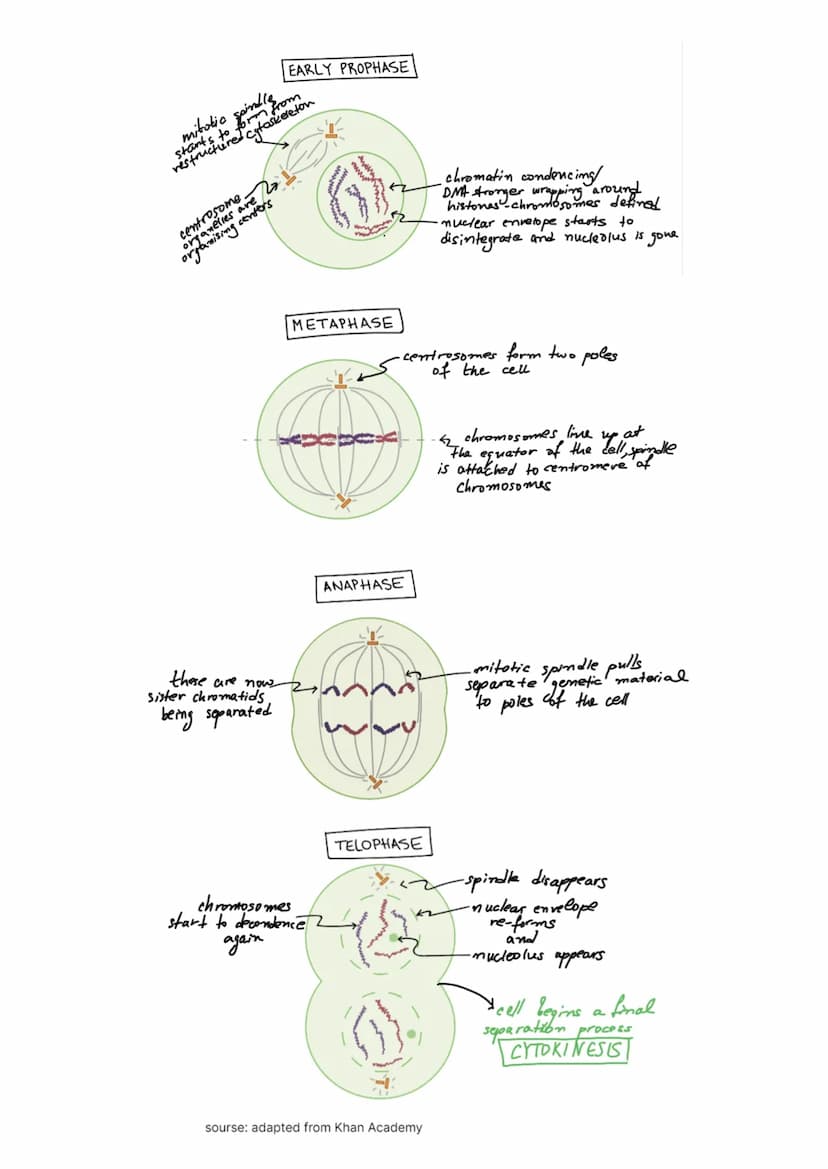 EARLY PROPHASE
mitotic spindle
starts to form from
restructured cytoskeleton
centrosome
organelles are
organising centers
chromatin condencing/
DNA stronger wrapping around
histones-chromosomes defined
nuclear envelope starts to
disintegrate and nucleolus is gone
METAPHASE
centrosomes form two poles
of the cell
chromosomes line up at
the equator of the cell, spindle
is attached to centromere of
chromosomes
ANAPHASE
these are now
sister chromatids
being separated
mitotic spindle pulls
separate genetic material
to poles of the cell
TELOPHASE
chromosomes
start to decondence
again
spindle disappears
nuclear envelope
re-forms
and
nucleolus appears
cell begins a final
separation process
CYTOKINESIS
sourse: adapted from Khan Academy